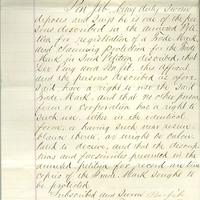 being duly sworn
deposes and says he is one of the per
sons described in the annexed Peti
tion for registration of a Trade Mark
and claiming protection for the Trade
Mark in said Petition described, that
this affiant
and the persons described as afore
said have a right to use the said
Trade Mark, and that no other person
firm or corporation has a right to
such use, either in the identical
form, or having such near resem
blance thereto, as might be calcu
lated to deceive, and that the descrip
tions and facsimiles presented in the
annexed petition for record are true
copies of the Trade Mark sought to
be protected.
Subscribed and Sworn